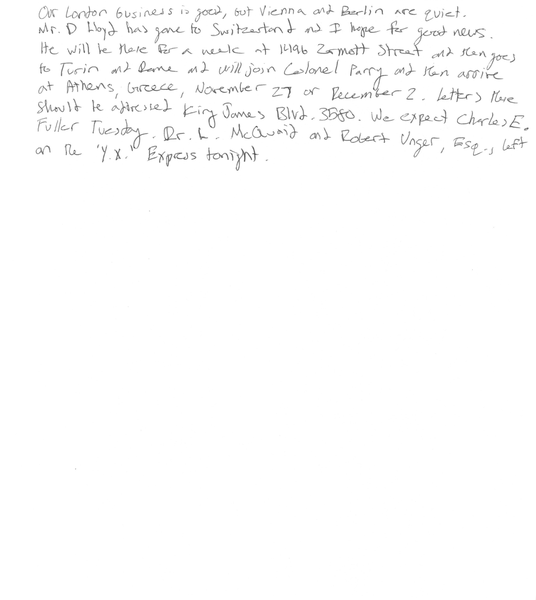 Our London business is good, but Vienna and Berlin are quiet.
Mr. D Lloyd has gone to Switzerland and I hope for good news.
He will be there for a week at 1496 Zermott Street and then goes
to Turin and Rome and will join Colonel Parry and then arrive
at Athens, Greece, November 27 or December 2. Letters there
should be addressed King James Blvd. 3580. We expect Charles E.
Fuller Tuesday. Dr. L. McQuaid and Robert Unger, Esq., left
on the "Y.X." Express tonight.